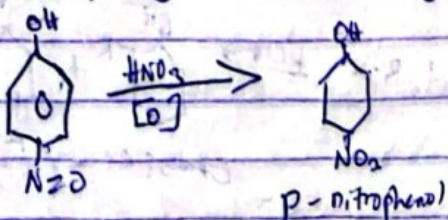 OH
OH
HNO₃
[O]
N=O
NO₂
p-nitrophenol